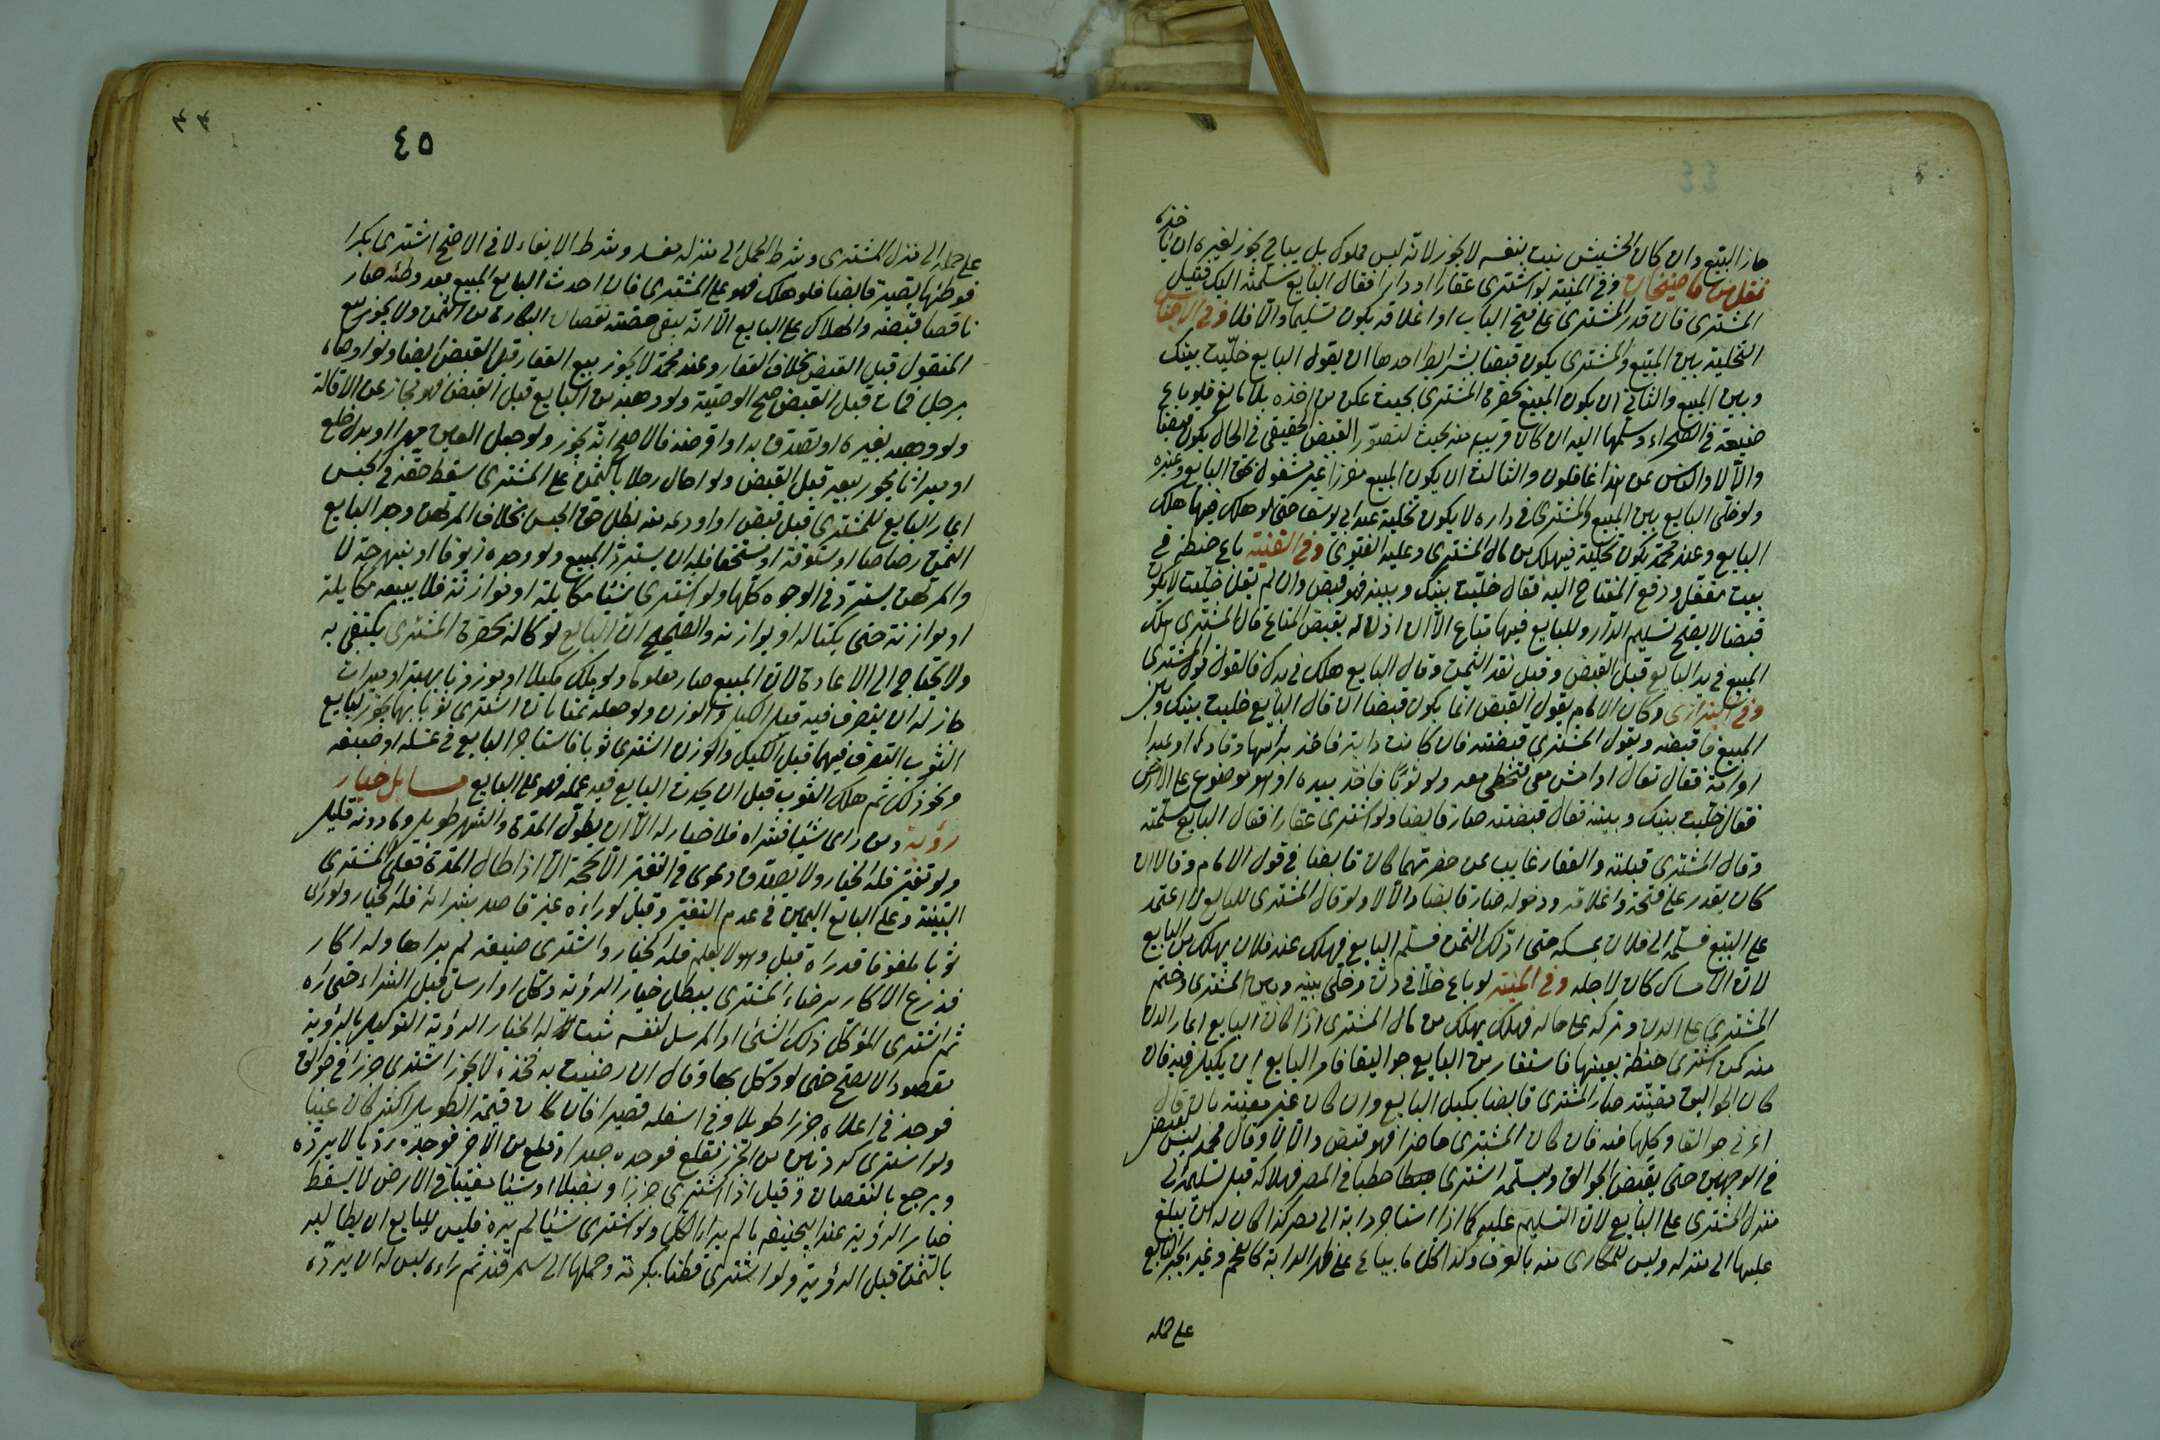 جاز البيع وان كان الحشيش نبت بنفسه لا يجوز لانه ليس مملوك بل يباح يجوز لغيره ان ياخذه
نقل من قاضيخان وفى المنية لو اشترى عقارا او دارا فقال البايع سلمته اليك فقبل
المشترى فان قدر المشترى على فتح الباب او اغلاقه يكون تسليما والا فلا وفى الاجناس
التخلية بين المبيع والمشترى يكون قبضا بشرائط احدها ان يقول البايع خليت بينك
وبين المبيع والثانى ان يكون المبيع بحضرة المشترى بحيث يمكن من اخذه بلا مانع فلو باع
ضيعة فى الصحراء وسلمها اليه ان كان قريب منه بحيث يتصور القبض الحقيقى فى الحال يكون قبضا
والا لا والناس عن هذا غافلون والثالث ان يكون المبيع مفرزا غير مشغول بحق البايع وغيره
ولو خلى البايع بين المبيع والمشترى فى داره لا يكون تخلية عند ابى يوسف حتى لو هلك فيها هلك
البايع وعند محمد يكون تخلية فيهلك من مال المشترى وعليه الفتوى وفى القنية باع حنطة فى
بيت مقفل ودفع المفتاح اليه فقال خليت بينك وبينه فهو قبض وان لم يقل خليت لا يكون
قبضا لا يصح تسليم الدار وللبايع فيها متاع الا ان اذن له بقبض المتاع قال المشترى هلك
المبيع فى يد البايع قبل القبض وقبل نقد الثمن وقال البايع هلك فى يدك فالقول قول المشترى
وفى البزازى وكان الامام يقول القبض انما يكون قبضا ان قال البايع خليت بينك وبين
المبيع فاقبضه ويقول المشترى قبضته فان كانت دابة فاخذ براسها وقادها او عبدا
او امة فقال تعال او امش معى فتخطى معه ولو ثوبا فاخذ بيده او هو موضوع على الارض
فقال خليت بينك وبينه فقال قبضته صار قابضا ولو اشترى عقارا فقال البايع سلمته
وقال المشترى قبلته والعقار غايب عن حضرتهما كان قابضا فى قول الامام وقالا ان
كان يقدر على فتحه واغلاقه ودخوله صار قابضا والا لا ولو قال المشترى للبايع لا اعتمد
على البيع فسلمه الى فلان يمسكه حتى ادرك الثمن فسلم البايع فهلك عند فلان يهلك من البايع
لان الامساك كان لاجله وفى المنية لو باع خلا فى دن وخلى بينه وبين المشترى وختم
المشترى على الدن وتركه على حاله فهلك يهلك من مال المشترى اذا كان البايع اعار الدن
منه كمن اشترى حنطة بعينها فاستعار من البايع جواليقا فامر البايع ان يكيل فيه فان
كان الجواليق معينة صار المشترى قابضا بكيل البايع وان كان غير معينة بان قال
اعرنى جوالقا وكلها فيه فان كان المشترى حاضرا فهو قبض والا لا وقال محمد ليس بقبض
فى الوجهين حتى يقبض الجوالق ويسلمه اشترى حطبا فى المصر فهلاكه قبل تسليمه الى
منزل المشترى على البايع لان التسليم عليه كما اذا استاجر دابة الى مصر كذا كان له ان يبلغ
عليها الى منزله وليس للمكارى منه بالعرف وكذا كل ما يباع على ظهر الدابة كالفحم وغيره يجبر البايع
على حمله
٤٥
على حمله الى منزل المشترى وشرط الحمل الى منزله مفسد وشرط الايفاء لا فى الاصح اشترى بكرا
فوطئها يصير قابضا فلو هلك فهو على المشترى فان احدث البايع المبيع بعد وطئه صار
ناقضا قبضه والهلاك على البايع الا انه يبقى حصته نقصان البكارة من الثمن ولا يجوز بيع
المنقول قبل القبض بخلاف العقار وعند محمد لا يجوز بيع العقار قبل القبض ايضا ولو اوصاه
برجل فمات قبل القبض صح الوصية ولو وهبه من البايع قبل القبض فهو مجاز عن الاقالة
ولو وهبه بغيره او تصدق به او اقرضه فالاصح انه يجوز ولو جعل العين مهرا او بدل خلع
او ميراثا يجوز بيعه قبل القبض ولو احال رجلا بالثمن على المشترى سقط حقه فى الحبس
اعار البايع للمشترى قبل قبض او اودعه منه بطل حق الحبس بخلاف المرتهن وجد البايع
الثمن رصاصا او ستوقة او مستحقا فله ان يسترد المبيع ولو وجده زيوفا او نبهرجة لا
والمرتهن يسترد فى الوجوه كلها ولو اشترى شيئا مكايلة او موازنة فلا يبيعه مكايلة
او موازنة حتى يكتاله او يوازنه والصحيح ان البايع لو كاله بحضرة المشترى يكتفى به
ولا يحتاج الى الاعادة لان المبيع صار معلوما ولو ملك مكيلا او موزونا بهبة او ميراث
جاز له ان يتصرف فيه قبل الكيل والوزن ولو جعله ثمنا بان اشترى ثوبا بهما يجوز لبايع
الثوب التصرف فيهما قبل الكيل والوزن اشترى ثوبا فاستاجر البايع فى غسله او صبغه
ونحو ذلك ثم هلك الثوب قبل ان يحدث البايع فيه عمله فهو على البايع مسايل خيار
رؤية ومن راى شيئا فشراه فلا خيار له الا ان يطول المدة والشهر طويل وما دونه قليل
ولو تغير فله الخيار ولا يصدق دعوى فى التغير الا بحجة الا اذا طال المدة فعلى المشترى
البينة وعلى البايع اليمين فى عدم التغير وقيل لو راءه غير قاصد بشرائه فله الخيار ولو راى
ثوبا ملفوفا قد راه قبل وهو لا يعلم فله الخيار واشترى ضيعة لم يراها وله اكار
فزرع الاكار برضاء المشترى يبطل خيار الرؤية وكل او ارسل قبل الشراء حتى راه
ثم اشترى الموكل ذلك الشئ او المرسل لنفسه ثبت له الخيار الرؤية التوكيل بالرؤية
مقصودا لا يصح حتى لو وكل بها وقال ان رضيت به فخذه لا يجوز اشترى جزرا فى جوالق
فوجد فى اعلاه جزرا طويلا وفى اسفله قصيرا فان كان قيمة الطويل اكثر كان عيبا
ولو اشترى كردين من الجزر فقلع فوجده جيدا وقلع من الاخر فوجده رديا لا يرده
ويرجع بالنقصان وقيل اذا اشترى جزرا وبصلا او شيئا مغيبا فى الارض لا يسقط
خيار الرؤية عند ابى حنيفة ما لم يرا الكل ولو اشترى شيئا لم يره فليس للبايع ان يطالبه
بالثمن قبل الرؤية ولو اشترى قطنا بكرته وحملها الى سمرقند ثم راءه ليس له ان يرده